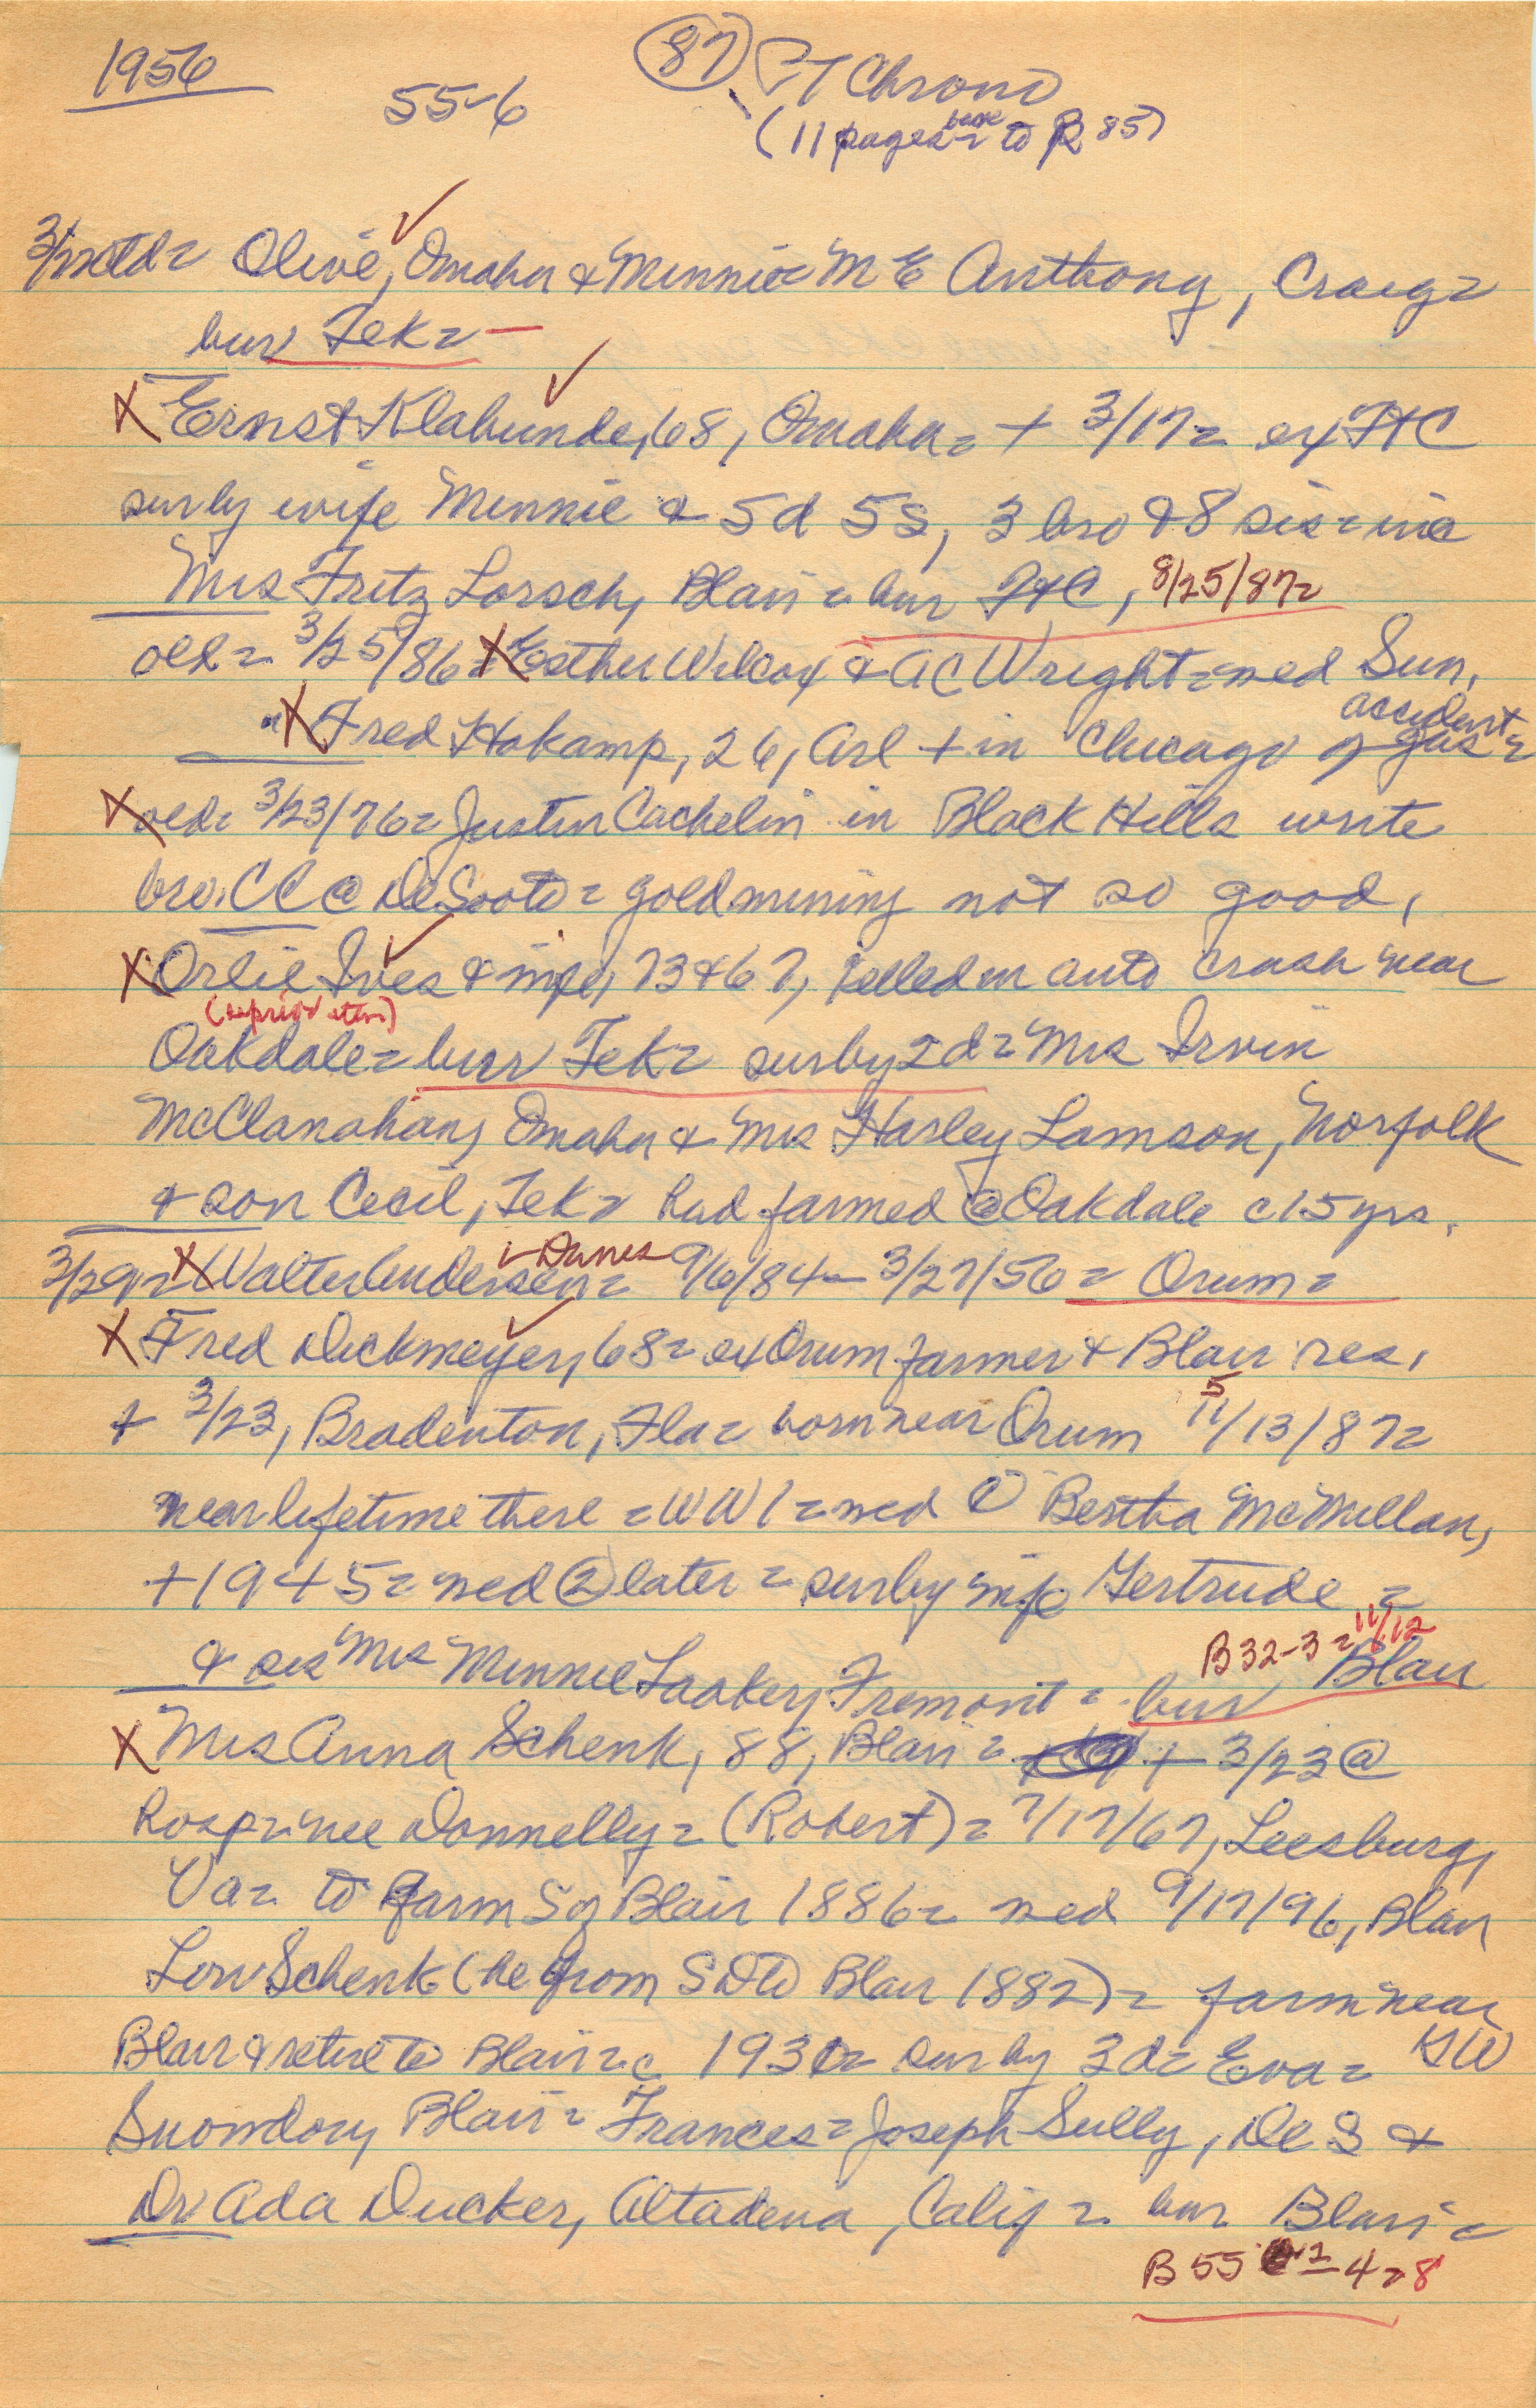 1956
55-6
87 PT Chrono
(11 pages back to P 85)
3/22ctd= Olive, Omaha & Minnie= M E Anthony, Craig=
bur Tek= —
X Ernst Klabunde, 68, Omaha= + 3/17= ex FtC
surby wife Minnie & 5d 5s, 3 bro & 8 sis= inc
Mrs Fritz Lorsch, Blair= bur FtC, 8/25/87=
old= 3/25/86= X Esther Wilcox & AC Wright= med Sun,
" X Fred Hokamp, 26, Arl + in Chicago of gas=
accident
X old= 3/23/76= Justin Cachelin in Black Hills write
bro. CC @ DeSoto= gold mining not so good,
X Orlie Ives & wife, 73 & 67, killed in auto crash near
Oakdale= bur Tek= surby 2d= Mrs Irvin
McClanahan, Omaha & Mrs Harley Lamson, Norfolk
& son Cecil, Tek= had farmed @ Oakdale c15 yrs.
3/29= X Walter Andersen= 9/6/84— 3/27/56= Orum=
Danes
X Fred Dickmeyer, 68= ex Orum farmer & Blair res,
+ 3/23, Bradenton, Fla= born near Orum 11/13/87=
5
near lifetime there= WW1= med ① Bertha McMillan,
+1945= med ② later= surby wife Gertrude=
& sis Mrs Minnie Laaker, Fremont= bur Blair
B32-3= 11/12
X Mrs Anna Schenk, 88, Blair= + 3/23 @
hosp= nee Donnelly= (Robert)= 7/17/67, Leesburg,
Va= to farm S of Blair 1886= med 9/17/96, Blair
Lou Schenk (he from SD to Blair 1882)= farm near
Blair & retire to Blair= c 1930= surby 3d= Eva= GW
Snowdon, Blair= Frances= Joseph Sully, DeS &
Dr Ada Ducker, Altadena, Calif= bur Blair=
B 55 - 4= 8